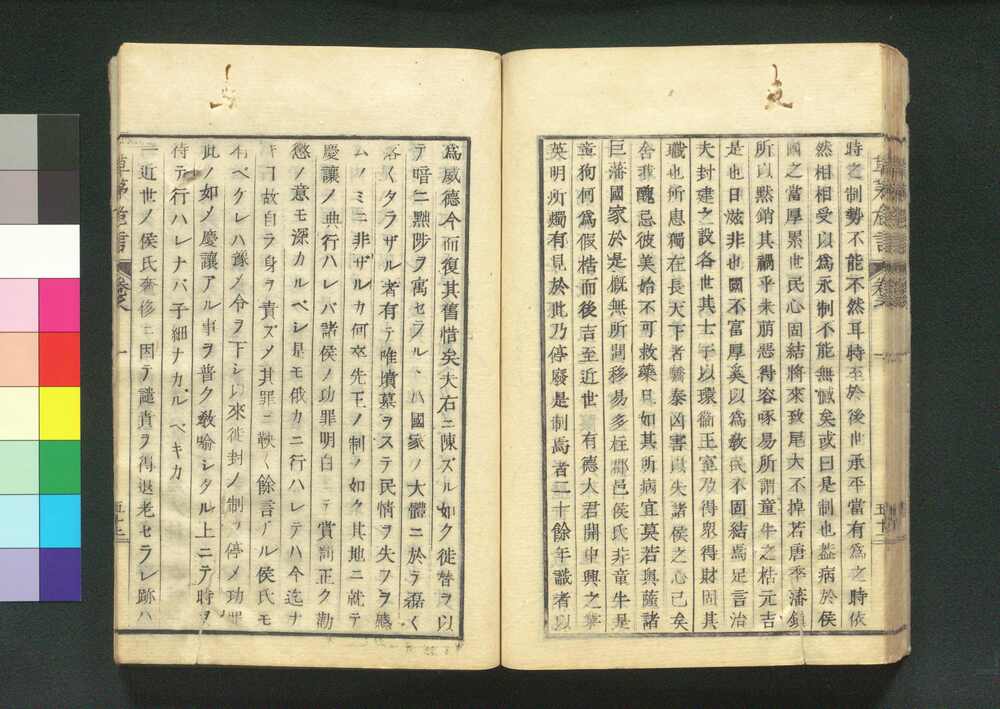 時之制勢不能不然耳時至於後世承平當有為之時依
然相相受以為永制不能無憾矣或曰是制也蓋病於侯
國之當厚累世民心固結將來致尾大不掉若唐季藩鎮
所以黙銷其禍乎未萠悪得容啄易所謂童牛之牿元吉
是也曰滋非也國不富厚奚以為敎民不固結焉足言治
夫封建之設各世其士子以環衞王室乃得衆得財固其
職也所患獨在長天下者驕泰凶害以失諸侯之心已矣
舍我醜忌彼美始不可救藥且如其所病宜莫若與薩諸
巨藩國家於是概無所開移易多在郡邑侯氏非童牛是
童狗何為假牿而後吉至近世有德大君開中興之
英明所燭有見於此乃停廢是制焉者二十餘年識者以
為威德今而復其舊惜矣大右ニ陳ズル如ク徙替ヲ以
テ暗ニ黙陟ヲ寓セラルヽハ國家ノ大體ニ於テ磊〱
落〱タラザル者有テ唯墳墓ヲステ民情ヲ失フヲ慼
ムノミニ非ザルカ何卒先王ノ制ノ如ク其地ニ就テ
慶讓ノ典行ハレバ諸侯ノ功罪明白ニテ賞罰正ク勸
懲ノ意モ深カルベシ是モ俄カニ行ハレテハ今迄ナ
キヿ故自ラ身ヲ責ズメ其罪ニ鞅〱餘言アル侯氏モ
有ベクレハ豫メ令ヲ下シ以來徙封ノ制ヲ停メ功罪
此ノ如メ慶讓アル事ヲ普ク敎喻シタル上ニテ時ヲ
待テ行ハレナバ子細ナカルベキカ
一近世ノ侯氏奢侈ニ因テ譴責ヲ得退老セラレ跡ハ
五十二